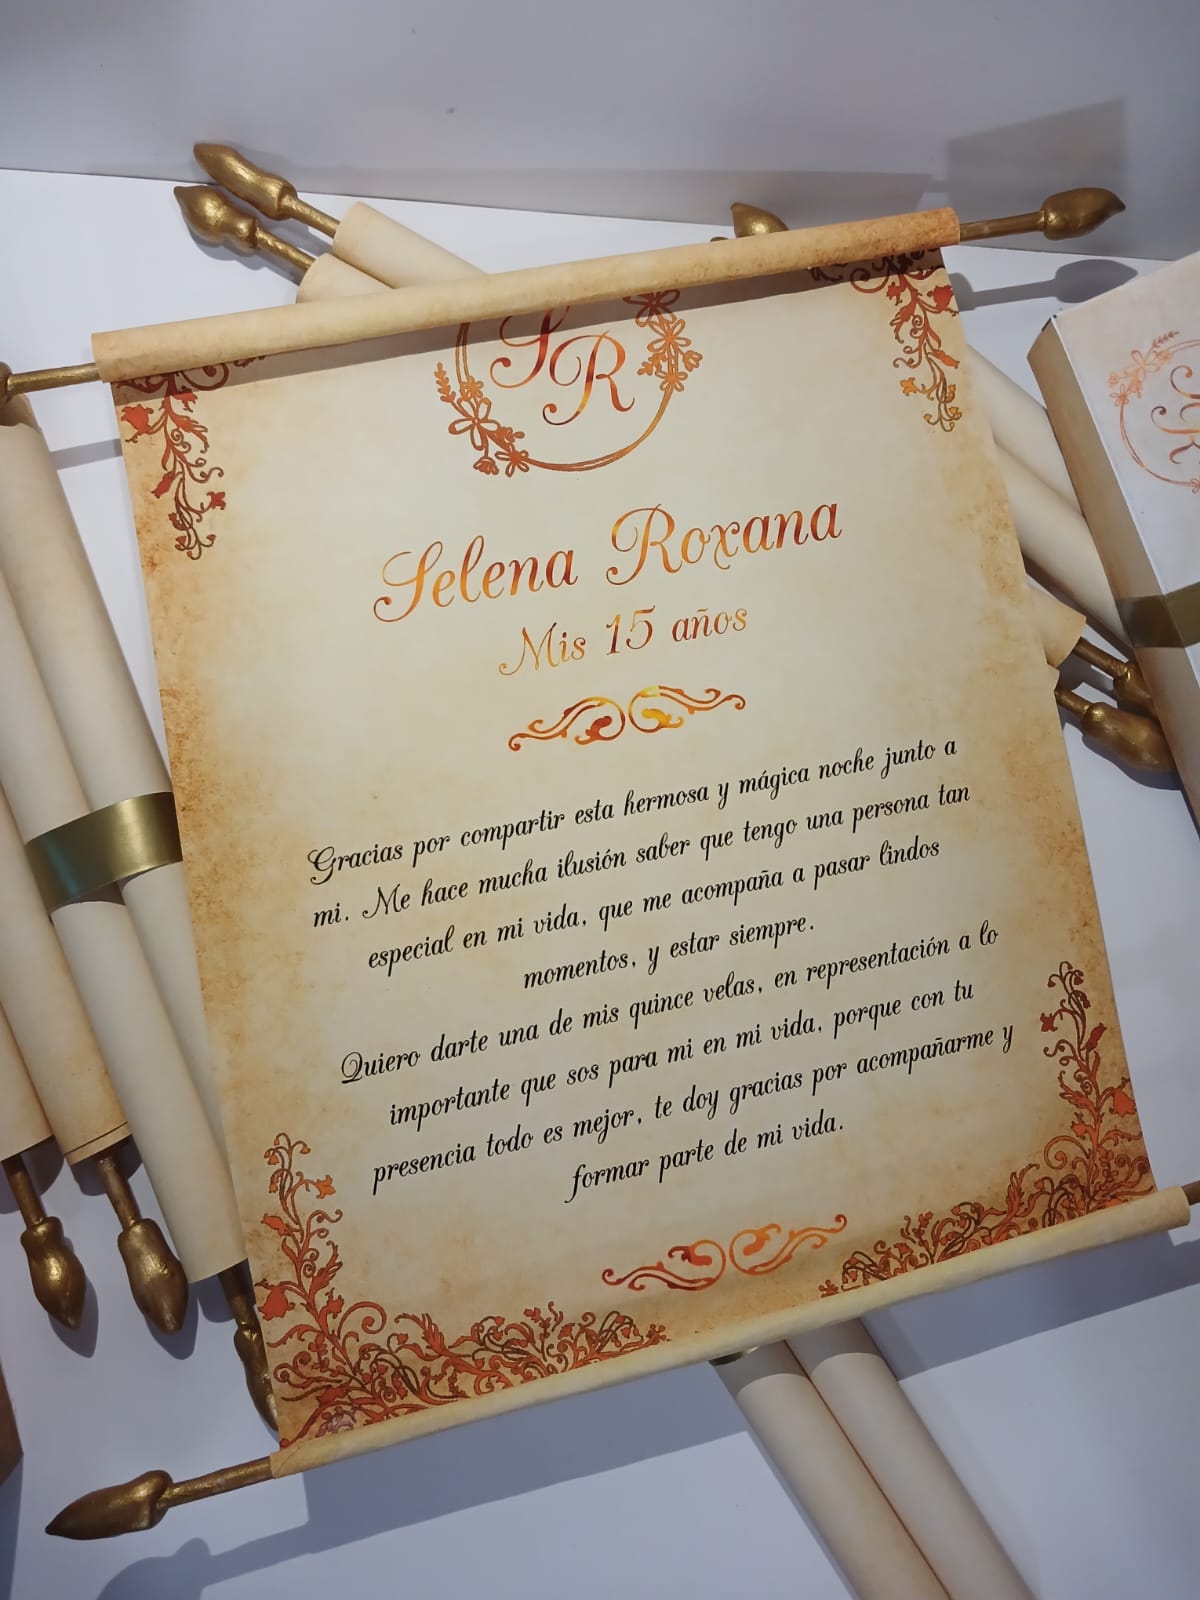 SR
Selena Roxana
Mis 15 años
Gracias por compartir esta hermosa y mágica noche junto a
mi. Me hace mucha ilusión saber que tengo una persona tan
especial en mi vida, que me acompaña a pasar lindos
momentos, y estar siempre.
Quiero darte una de mis quince velas, en representación a lo
importante que sos para mi en mi vida, porque con tu
presencia todo es mejor, te doy gracias por acompañarme y
formar parte de mi vida.
SR